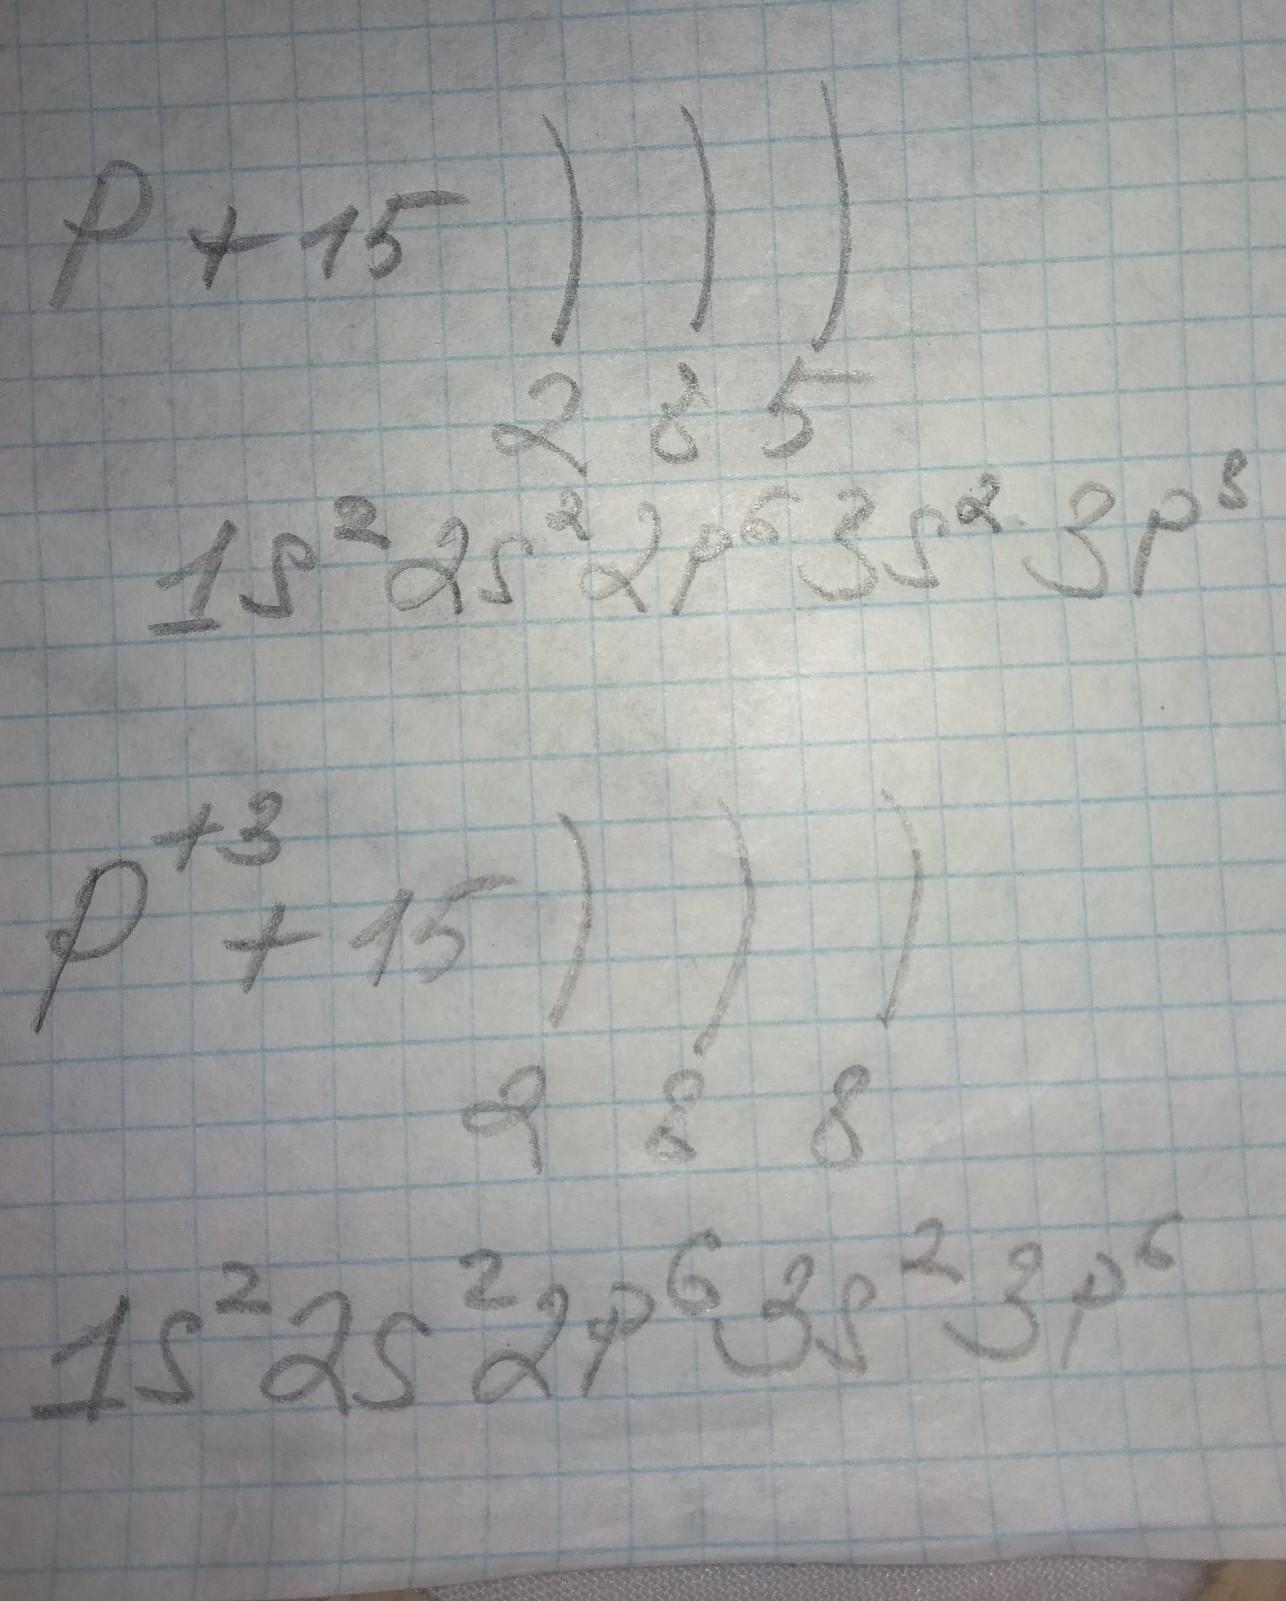 P + 15 ) ) )
2 8 5
1s² 2s² 2p⁶ 3s² 3p³
P⁺³ + 15 ) ) )
2 8 8
1s² 2s² 2p⁶ 3s² 3p⁶